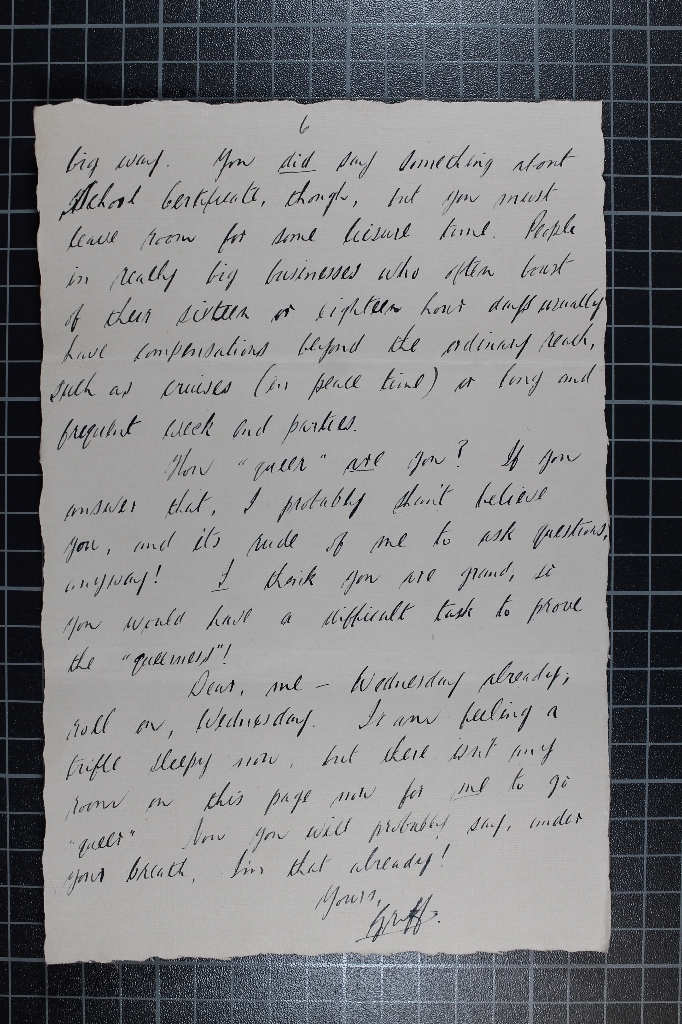 6
big way. You did say something about
School Certificate, though, but you must
leave room for some liesure time. People
in really big businesses who often boast
of their sixteen or eighteen hour days usually
have compensations beyond the ordinary reach,
such as cruises (in peace time) or long and
frequent week end parties.
How "queer" are you? If you
answer that, I probably shan't believe
you, and its rude of me to ask questions,
anyway! I think you are grand, so
you would have a difficult task to prove
the "queerness"!
Dear, me - Wednesday already,
roll on, Wednesday. I am feeling a
trifle sleepy now, but there isn't any
room on this page now for me to go
"queer" Now you will probably say, under
your breath, I'm that already!
Yours,
Griff.